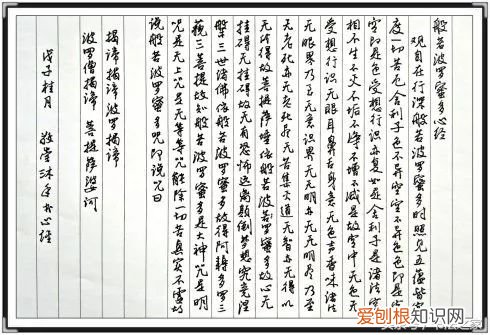 般若波罗蜜多心经
观自在行深般若波罗蜜多时照见五蕴皆空
度一切苦厄舍利子色不异空空不异色色即是
空即是色受想行识亦复如是舍利子是诸法空
相不生不灭不垢不净不增不减是故空中无色无
受想行识无眼耳鼻舌身意无色声香味触法
无眼界乃至无意识界无无明亦无无明尽乃至
无老死亦无老死尽无苦集灭道无智亦无得以
无所得故菩提萨埵依般若波罗蜜多故心无
挂碍无挂碍故无有恐怖远离颠倒梦想究竟涅
槃三世诸佛依般若波罗蜜多故得阿耨多罗三
藐三菩提故知般若波罗蜜多是大神咒是明
咒是无上咒是无等等咒能除一切苦真实不虚故
说般若波罗蜜多咒即说咒曰
揭谛揭谛波罗揭谛
波罗僧揭谛 菩提萨婆诃
戊子桂月 沐手书心经
爱刨根知识网